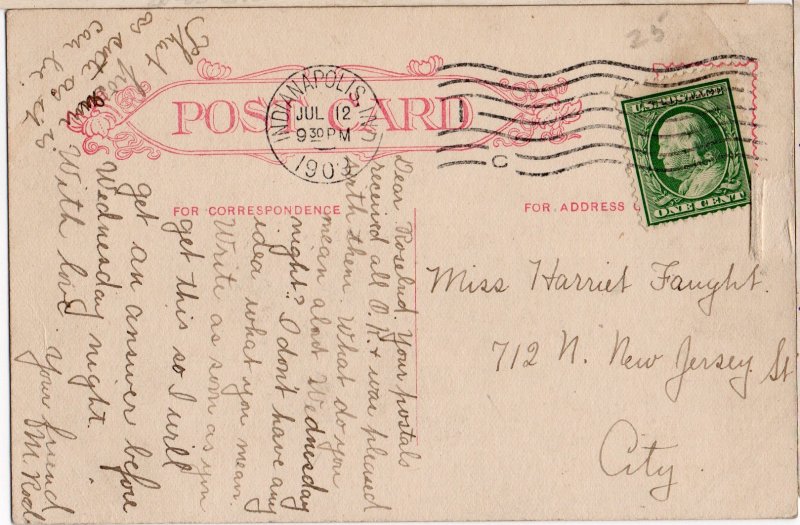 25
POST CARD
INDIANAPOLIS, IND.
JUL 12
9 30 PM
1
C
U.S. POSTAGE
ONE CENT
FOR CORRESPONDENCE
FOR ADDRESS
Miss Harriet Faught.
712 N. New Jersey St
City.
Dear Rosebud, Your postals
received all O.K. + was pleased
with them. What do you
mean about Wednesday
night? I don't have any
idea what you mean.
Write as soon as you
get this so I will
get an answer before
Wednesday night.
With love. Your friend
M. Rod
That
as cute as it
can be.